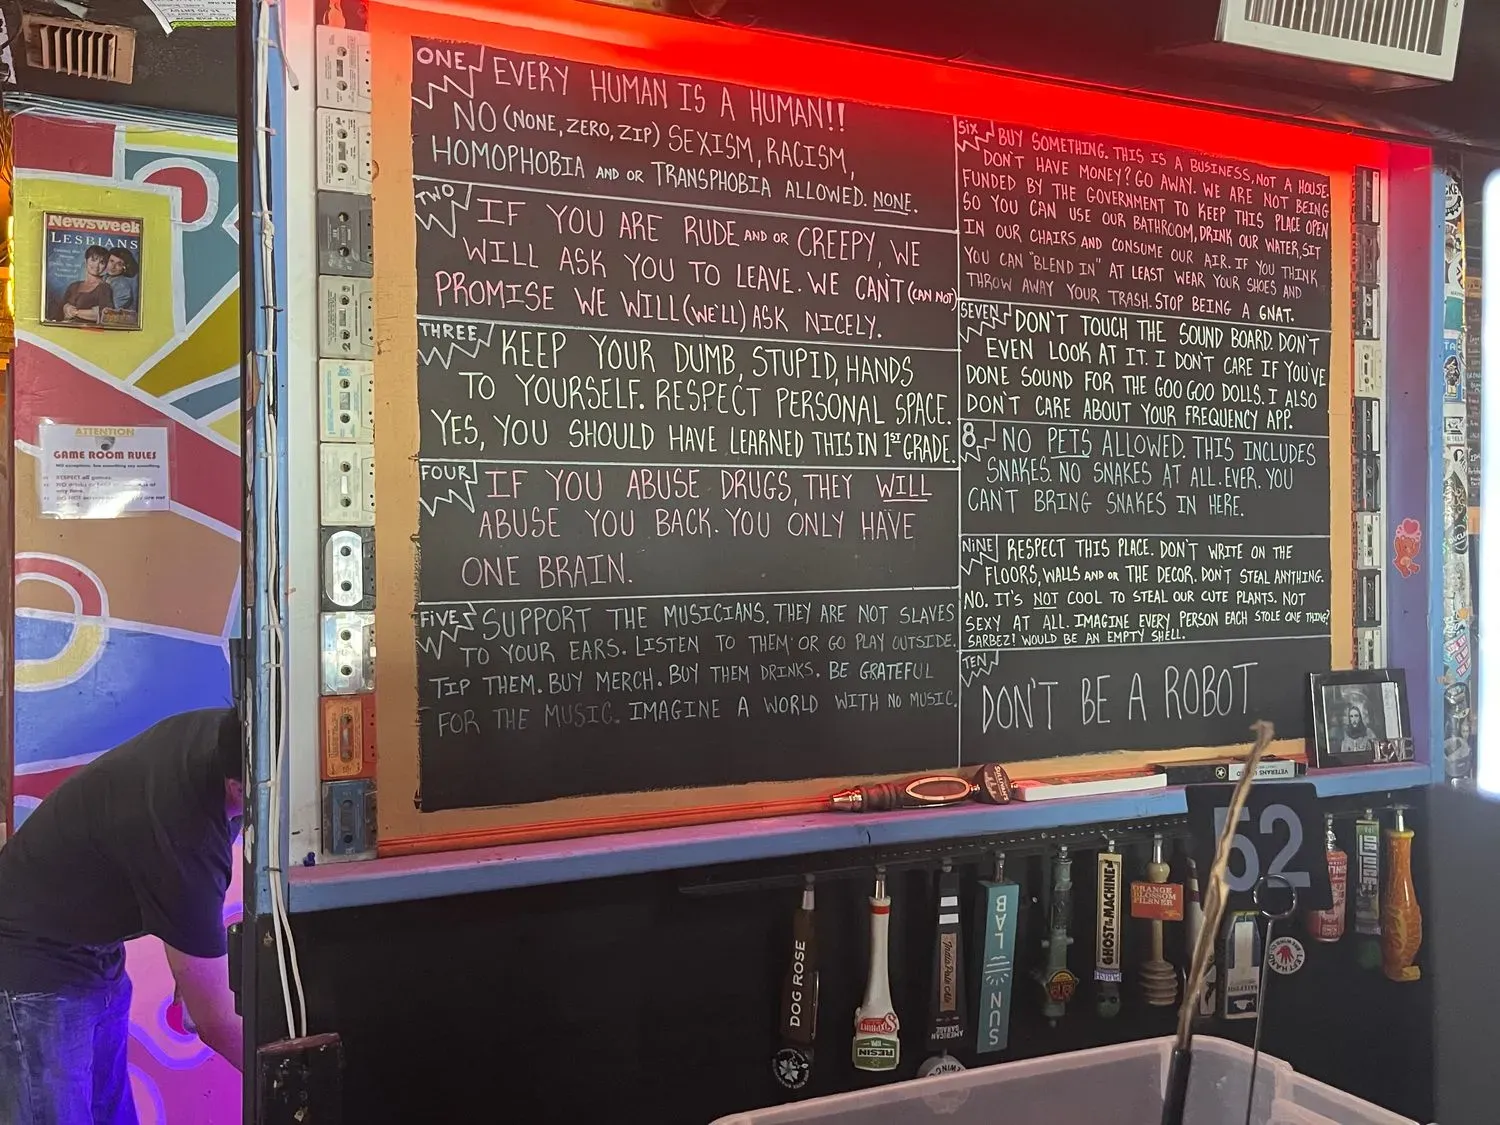 ONE
EVERY HUMAN IS A HUMAN!!
NO (NONE, ZERO, ZIP) SEXISM, RACISM,
HOMOPHOBIA AND OR TRANSPHOBIA ALLOWED. NONE.
TWO
IF YOU ARE RUDE AND OR CREEPY, WE
WILL ASK YOU TO LEAVE. WE CAN'T (CAN NOT)
PROMISE WE WILL (WE'LL) ASK NICELY.
THREE
KEEP YOUR DUMB, STUPID, HANDS
TO YOURSELF. RESPECT PERSONAL SPACE.
YES, YOU SHOULD HAVE LEARNED THIS IN 1ST GRADE.
FOUR
IF YOU ABUSE DRUGS, THEY WILL
ABUSE YOU BACK. YOU ONLY HAVE
ONE BRAIN.
FIVE
SUPPORT THE MUSICIANS. THEY ARE NOT SLAVES
TO YOUR EARS. LISTEN TO THEM OR GO PLAY OUTSIDE.
TIP THEM. BUY MERCH. BUY THEM DRINKS. BE GRATEFUL
FOR THE MUSIC. IMAGINE A WORLD WITH NO MUSIC.
SIX
BUY SOMETHING. THIS IS A BUSINESS, NOT A HOUSE.
DON'T HAVE MONEY? GO AWAY. WE ARE NOT BEING
FUNDED BY THE GOVERNMENT TO KEEP THIS PLACE OPEN
SO YOU CAN USE OUR BATHROOM, DRINK OUR WATER, SIT
IN OUR CHAIRS AND CONSUME OUR AIR. IF YOU THINK
YOU CAN "BLEND IN" AT LEAST WEAR YOUR SHOES AND
THROW AWAY YOUR TRASH. STOP BEING A GNAT.
SEVEN
DON'T TOUCH THE SOUND BOARD. DON'T
EVEN LOOK AT IT. I DON'T CARE IF YOU'VE
DONE SOUND FOR THE GOO GOO DOLLS. I ALSO
DON'T CARE ABOUT YOUR FREQUENCY APP.
8
NO PETS ALLOWED. THIS INCLUDES
SNAKES. NO SNAKES AT ALL. EVER. YOU
CAN'T BRING SNAKES IN HERE.
NINE
RESPECT THIS PLACE. DON'T WRITE ON THE
FLOORS, WALLS AND OR THE DECOR. DON'T STEAL ANYTHING.
NO. IT'S NOT COOL TO STEAL OUR CUTE PLANTS. NOT
SEXY AT ALL. IMAGINE EVERY PERSON EACH STOLE ONE THING?
SARBEZ! WOULD BE AN EMPTY SHELL.
TEN
DON'T BE A ROBOT
Newsweek
LESBIANS
ATTENTION
GAME ROOM RULES
RESPECT all games.
LOVE
VETERANS UNITED
52
DOG ROSE
RESIN
India Pale Ale
AMERICAN
SUN LAB
GHOST IN THE MACHINE
PARISH
ORANGE
BLOSSOM
PILSNER
LEFT HAND
BREWING CO